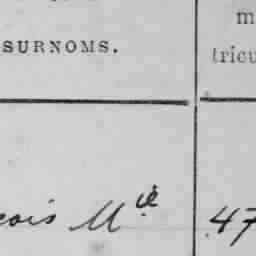 m
SURNOMS.
tricu
cois M^ie
47